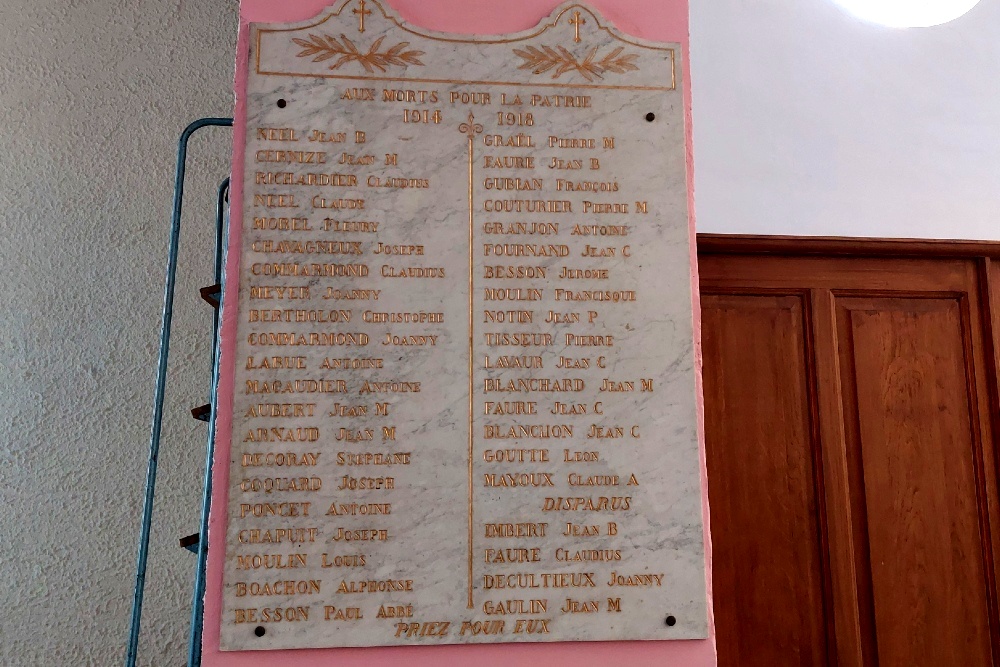 AUX MORTS POUR LA PATRIE
1914 1918
NEEL JEAN B
CERNIZE JEAN M
RICHARDIER CLAUDIUS
NEEL CLAUDE
MOREL FLEURY
CHAVAGNEUX JOSEPH
COMMARMOND CLAUDIUS
MEYER JOANNY
BERTHOLON CHRISTOPHE
COMMARMOND JOANNY
LARUE ANTOINE
MAGAUDIER ANTOINE
AUBERT JEAN M
ARNAUD JEAN M
DECORAY STEPHANE
COQUARD JOSEPH
PONCET ANTOINE
CHAPUIT JOSEPH
MOULIN LOUIS
BOACHON ALPHONSE
BESSON PAUL ABBÉ
GRAËL PIERRE M
FAURE JEAN B
GUBIAN FRANÇOIS
COUTURIER PIERRE M
GRANJON ANTOINE
FOURNAND JEAN C
BESSON JEROME
MOULIN FRANCISQUE
NOTIN JEAN P
TISSEUR PIERRE
LAVAUR JEAN C
BLANCHARD JEAN M
FAURE JEAN C
BLANCHON JEAN C
GOUTTE LEON
MAYOUX CLAUDE A
DISPARUS
IMBERT JEAN B
FAURE CLAUDIUS
DECULTIEUX JOANNY
GAULIN JEAN M
PRIEZ POUR EUX